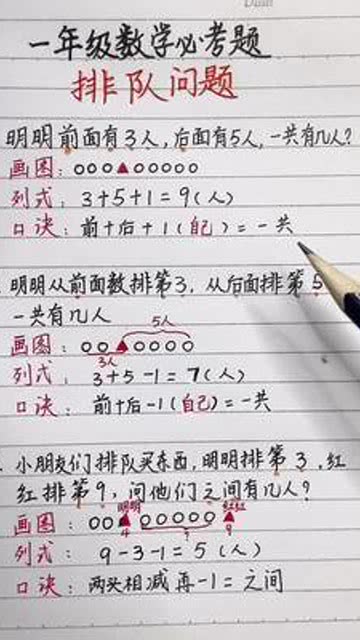 一年级数学必考题
排队问题
明明前面有3人,后面有5人,一共有几人?
画图:○○○▲○○○○○
列式:3+5+1=9(人)
口诀:前+后+1(自己)=一共
明明从前面数排第3,从后面排第5
一共有几人
5人
画图:○○▲○○○○
3人
列式:3+5-1=7(人)
口诀:前+后-1(自己)=一共
小朋友们排队买东西,明明排第3,红
红排第9,问他们之间有几人?
明明 红红
画图:○○▲○○○○○▲
4 ? 9
列式:9-3-1=5(人)
口诀:两头相减再-1=之间